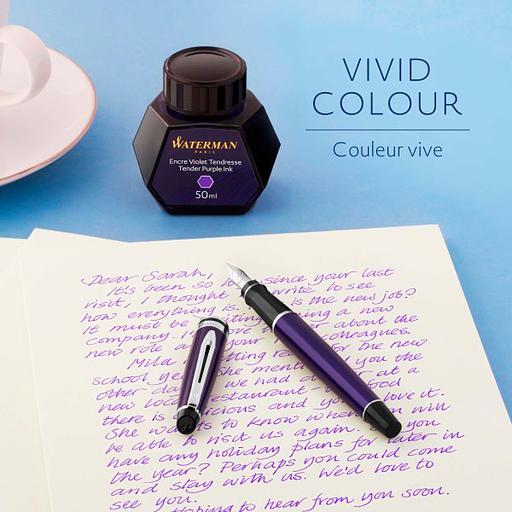 VIVID
COLOUR
Couleur vive
WATERMAN
PARIS
Encre Violet Tendresse
Tender Purple Ink
50ml
Dear Sarah,
It's been so since your last
visit, I thought write to see
how everything is. is the new job?
It must be a new
company. about the
new role your colleagues.
Mila getting for the new
school year. She you the
other day we had at a
new local restaurant food
there is delicious and you love it.
She wants to know when will
be able to visit us again. you
have any holiday plans for later in
the year? Perhaps you could come
and stay with us. We'd love to
see you.
Hoping to hear from you soon.